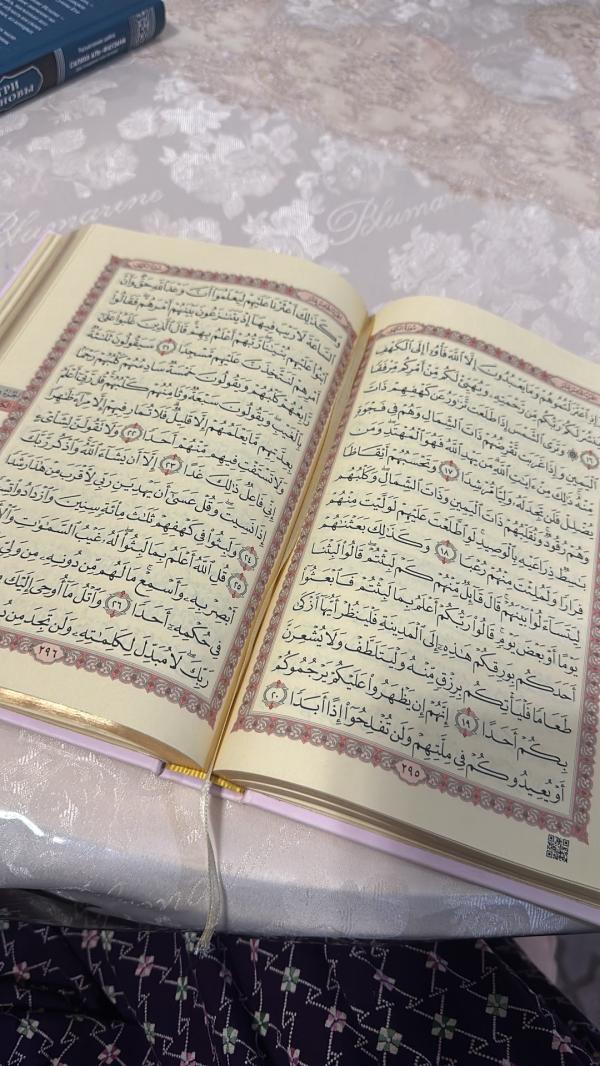 وَإِذِ ٱعْتَزَلْتُمُوهُمْ وَمَا يَعْبُدُونَ إِلَّا ٱللَّهَ فَأْوُۥٓاْ إِلَى ٱلْكَهْفِ
يَنشُرْ لَكُمْ رَبُّكُم مِّن رَّحْمَتِهِۦ وَيُهَيِّئْ لَكُم مِّنْ أَمْرِكُم مِّرْفَقًا
١٦ ۞ وَتَرَى ٱلشَّمْسَ إِذَا طَلَعَت تَّزَٰوَرُ عَن كَهْفِهِمْ ذَاتَ
ٱلْيَمِينِ وَإِذَا غَرَبَت تَّقْرِضُهُمْ ذَاتَ ٱلشِّمَالِ وَهُمْ فِي فَجْوَةٍ
مِّنْهُۚ ذَٰلِكَ مِنْ ءَايَٰتِ ٱللَّهِۗ مَن يَهْدِ ٱللَّهُ فَهُوَ ٱلْمُهْتَدِۖ وَمَن
يُضْلِلْ فَلَن تَجِدَ لَهُۥ وَلِيًّا مُّرْشِدًا ١٧ وَتَحْسَبُهُمْ أَيْقَاظًا
وَهُمْ رُقُودٌۚ وَنُقَلِّبُهُمْ ذَاتَ ٱلْيَمِينِ وَذَاتَ ٱلشِّمَالِۖ وَكَلْبُهُم
بَٰسِطٌ ذِرَاعَيْهِ بِٱلْوَصِيدِۚ لَوِ ٱطَّلَعْتَ عَلَيْهِمْ لَوَلَّيْتَ مِنْهُمْ
فِرَارًا وَلَمُلِئْتَ مِنْهُمْ رُعْبًا ١٨ وَكَذَٰلِكَ بَعَثْنَٰهُمْ
لِيَتَسَآءَلُواْ بَيْنَهُمْۚ قَالَ قَآئِلٌ مِّنْهُمْ كَمْ لَبِثْتُمْۖ قَالُواْ لَبِثْنَا
يَوْمًا أَوْ بَعْضَ يَوْمٍۚ قَالُواْ رَبُّكُمْ أَعْلَمُ بِمَا لَبِثْتُمْ فَٱبْعَثُوٓاْ
أَحَدَكُم بِوَرِقِكُمْ هَٰذِهِۦٓ إِلَى ٱلْمَدِينَةِ فَلْيَنظُرْ أَيُّهَآ أَزْكَىٰ
طَعَامًا فَلْيَأْتِكُم بِرِزْقٍ مِّنْهُ وَلْيَتَلَطَّفْ وَلَا يُشْعِرَنَّ
بِكُمْ أَحَدًا ١٩ إِنَّهُمْ إِن يَظْهَرُواْ عَلَيْكُمْ يَرْجُمُوكُمْ
أَوْ يُعِيدُوكُمْ فِي مِلَّتِهِمْ وَلَن تُفْلِحُوٓاْ إِذًا أَبَدًا ٢٠
٢٩٥
وَكَذَٰلِكَ أَعْثَرْنَا عَلَيْهِمْ لِيَعْلَمُوٓاْ أَنَّ وَعْدَ ٱللَّهِ حَقٌّ وَأَنَّ
ٱلسَّاعَةَ لَا رَيْبَ فِيهَآ إِذْ يَتَنَٰزَعُونَ بَيْنَهُمْ أَمْرَهُمْۖ فَقَالُواْ
ٱبْنُواْ عَلَيْهِم بُنْيَٰنًاۖ رَّبُّهُمْ أَعْلَمُ بِهِمْۚ قَالَ ٱلَّذِينَ غَلَبُواْ عَلَىٰٓ
أَمْرِهِمْ لَنَتَّخِذَنَّ عَلَيْهِم مَّسْجِدًا ٢١ سَيَقُولُونَ ثَلَٰثَةٌ
رَّابِعُهُمْ كَلْبُهُمْ وَيَقُولُونَ خَمْسَةٌ سَادِسُهُمْ كَلْبُهُمْ رَجْمًا
بِٱلْغَيْبِۖ وَيَقُولُونَ سَبْعَةٌ وَثَامِنُهُمْ كَلْبُهُمْۚ قُل رَّبِّيٓ أَعْلَمُ
بِعِدَّتِهِم مَّا يَعْلَمُهُمْ إِلَّا قَلِيلٌۗ فَلَا تُمَارِ فِيهِمْ إِلَّا مِرَآءً ظَٰهِرًا
وَلَا تَسْتَفْتِ فِيهِم مِّنْهُمْ أَحَدًا ٢٢ وَلَا تَقُولَنَّ لِشَاْيْءٍ
إِنِّي فَاعِلٌ ذَٰلِكَ غَدًا ٢٣ إِلَّآ أَن يَشَآءَ ٱللَّهُۚ وَٱذْكُر رَّبَّكَ
إِذَا نَسِيتَ وَقُلْ عَسَىٰٓ أَن يَهْدِيَنِ رَبِّي لِأَقْرَبَ مِنْ هَٰذَا رَشَدًا
٢٤ وَلَبِثُواْ فِي كَهْفِهِمْ ثَلَٰثَ مِاْئَةٍ سِنِينَ وَٱزْدَادُواْ
٢٥ قُلِ ٱللَّهُ أَعْلَمُ بِمَا لَبِثُواْۖ لَهُۥ غَيْبُ ٱلسَّمَٰوَٰتِ
أَبْصِرْ بِهِۦ وَأَسْمِعْۚ مَا لَهُم مِّن دُونِهِۦ مِن وَلِيٍّ
فِي حُكْمِهِۦٓ أَحَدًا ٢٦ وَٱتْلُ مَآ أُوحِيَ إِلَيْكَ
رَبِّكَۖ لَا مُبَدِّلَ لِكَلِمَٰتِهِۦ وَلَن تَجِدَ مِن
٢٩٦
Blumarine
Blumarine